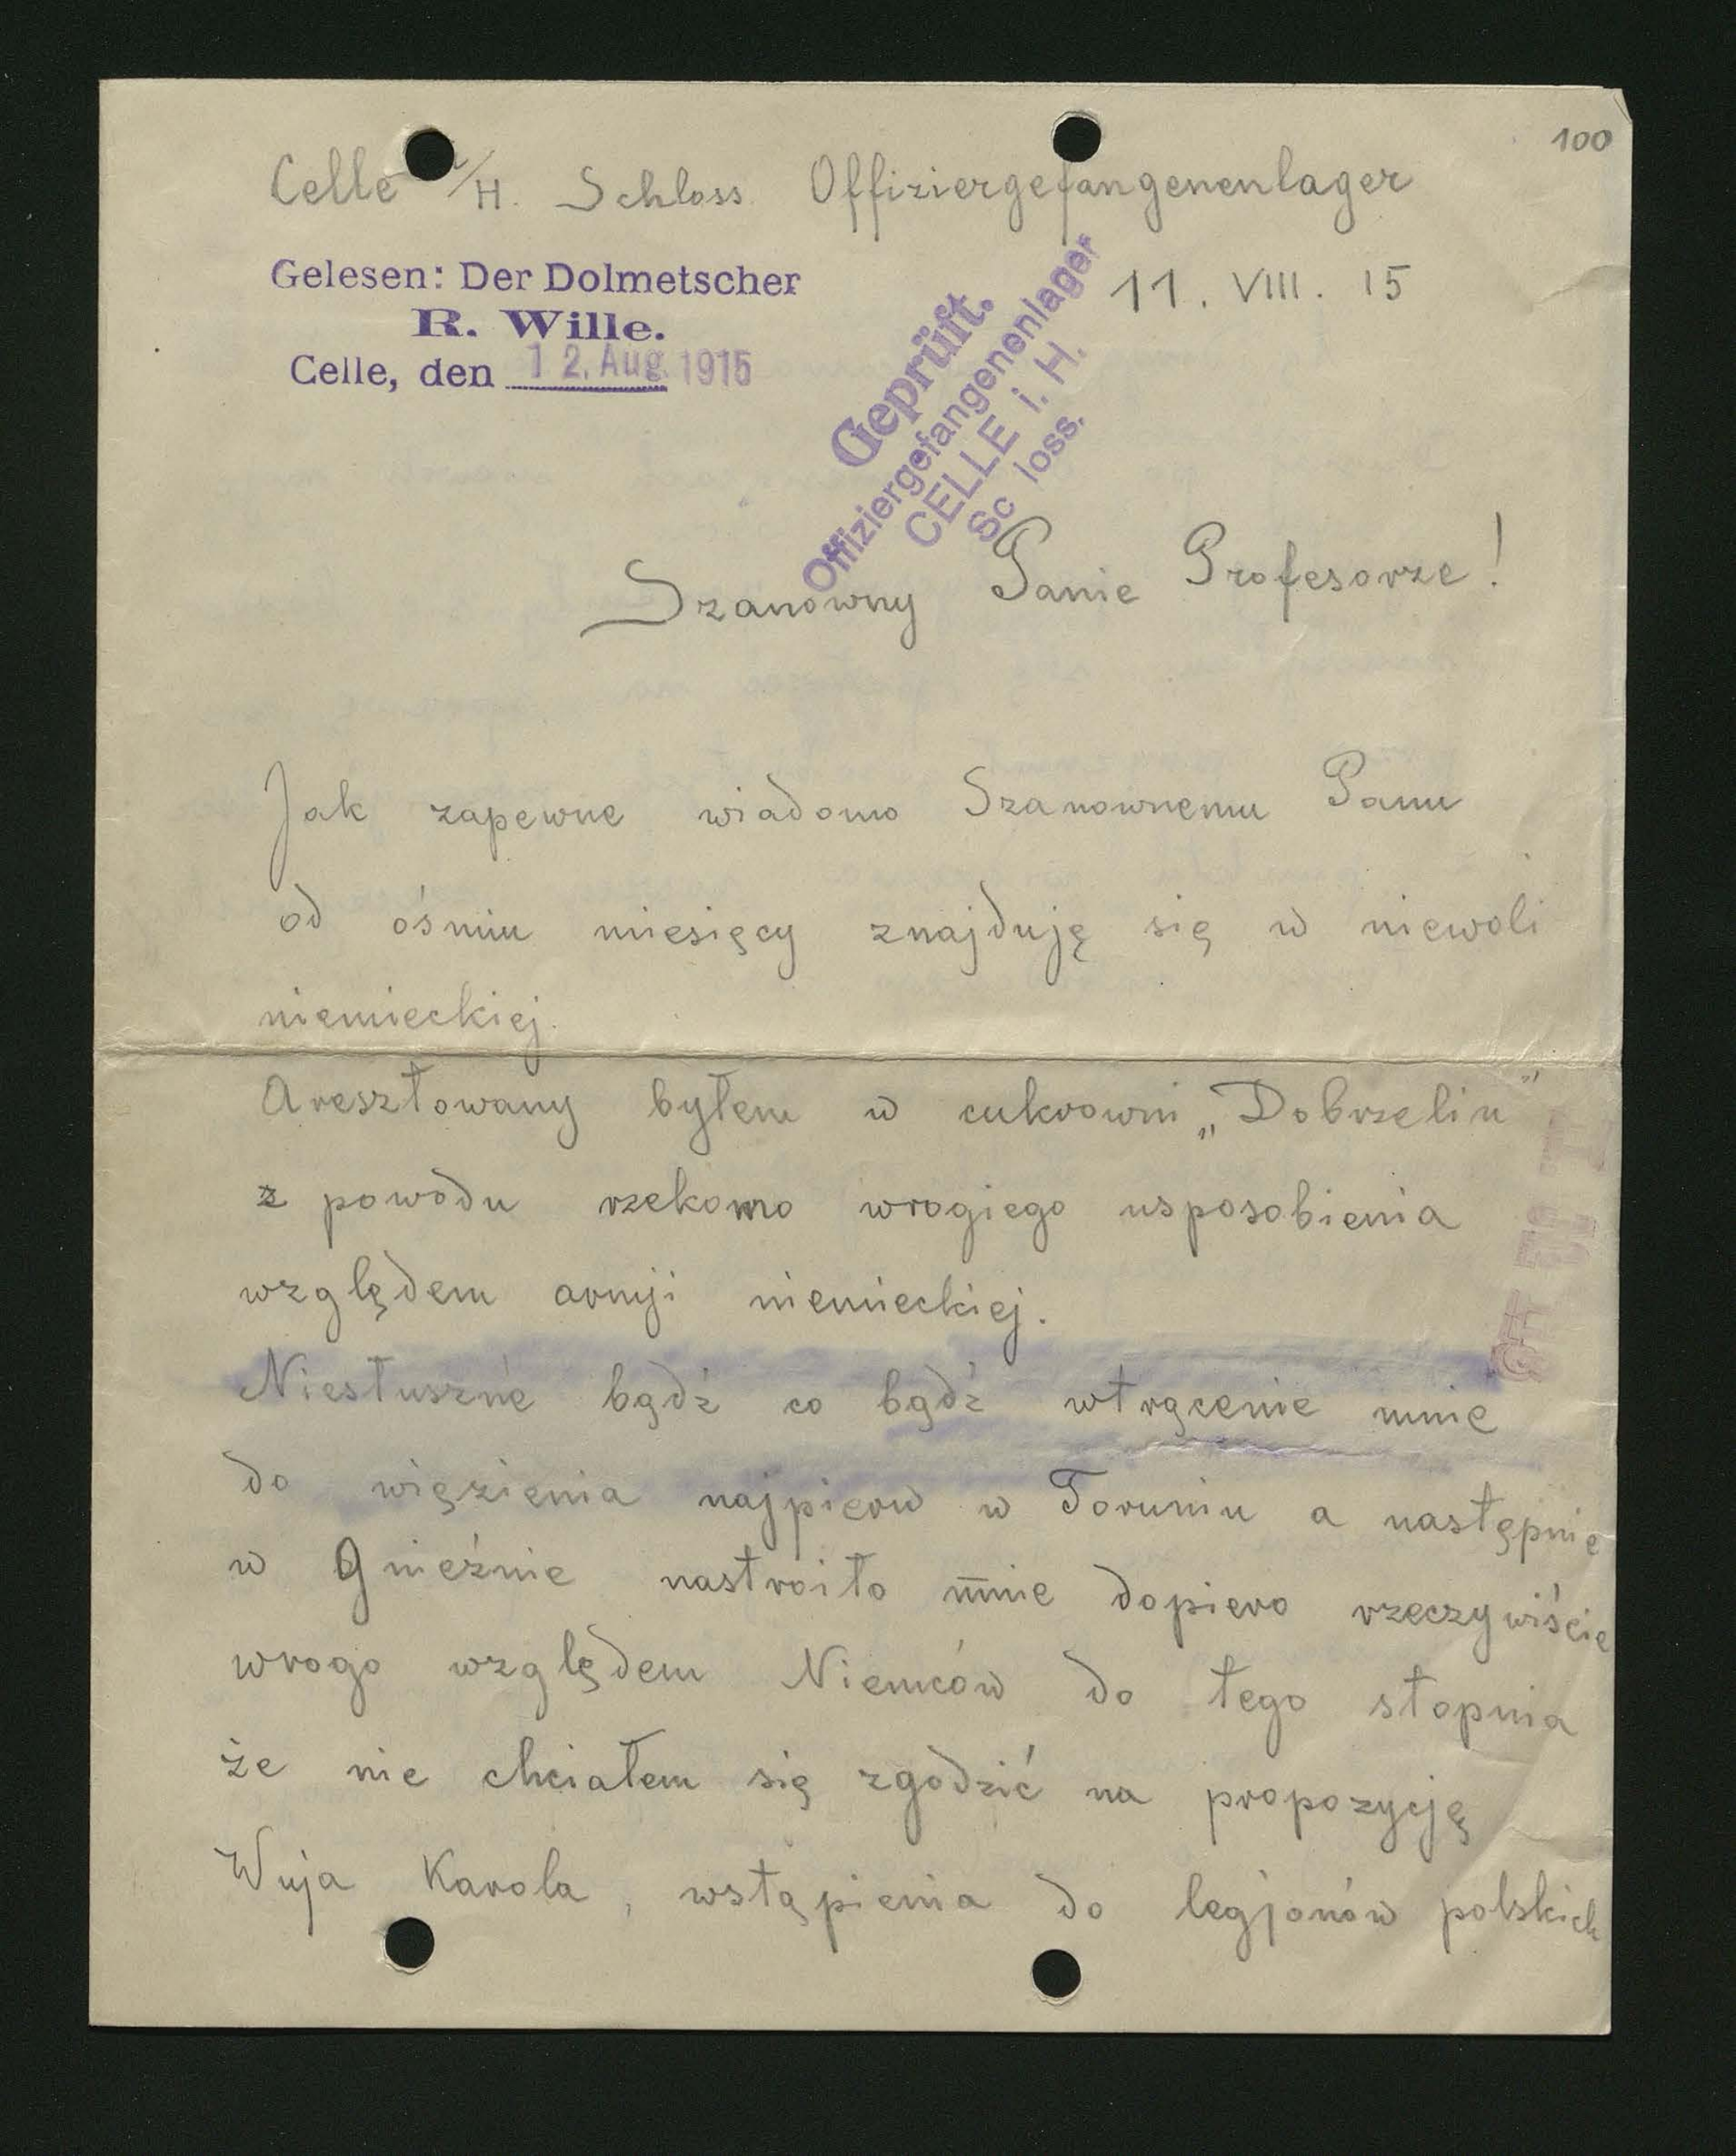 100
Celle i/H. Schloss Offiziergefangenenlager
Gelesen: Der Dolmetscher
R. Wille.
Celle, den 12. Aug. 1915
Geprüft.
Offiziergefangenenlager
CELLE i. H.
Sc loss.
11. VIII. 15
Szanowny Panie Profesorze!
Jak zapewne wiadomo Szanownemu Panu
od ośmiu miesięcy znajduję się w niewoli
niemieckiej.
Aresztowany byłem w cukrowni „Dobrzelin"
z powodu rzekomo wrogiego usposobienia
względem armji niemieckiej.
Niesłuszne bądź co bądź wtrącenie mnie
do więzienia najpierw w Toruniu a następnie
w Gnieźnie nastroiło mnie dopiero rzeczywiście
wrogo względem Niemców do tego stopnia
że nie chciałem się zgodzić na propozycję
Wuja Karola, wstąpienia do legjonów polskich